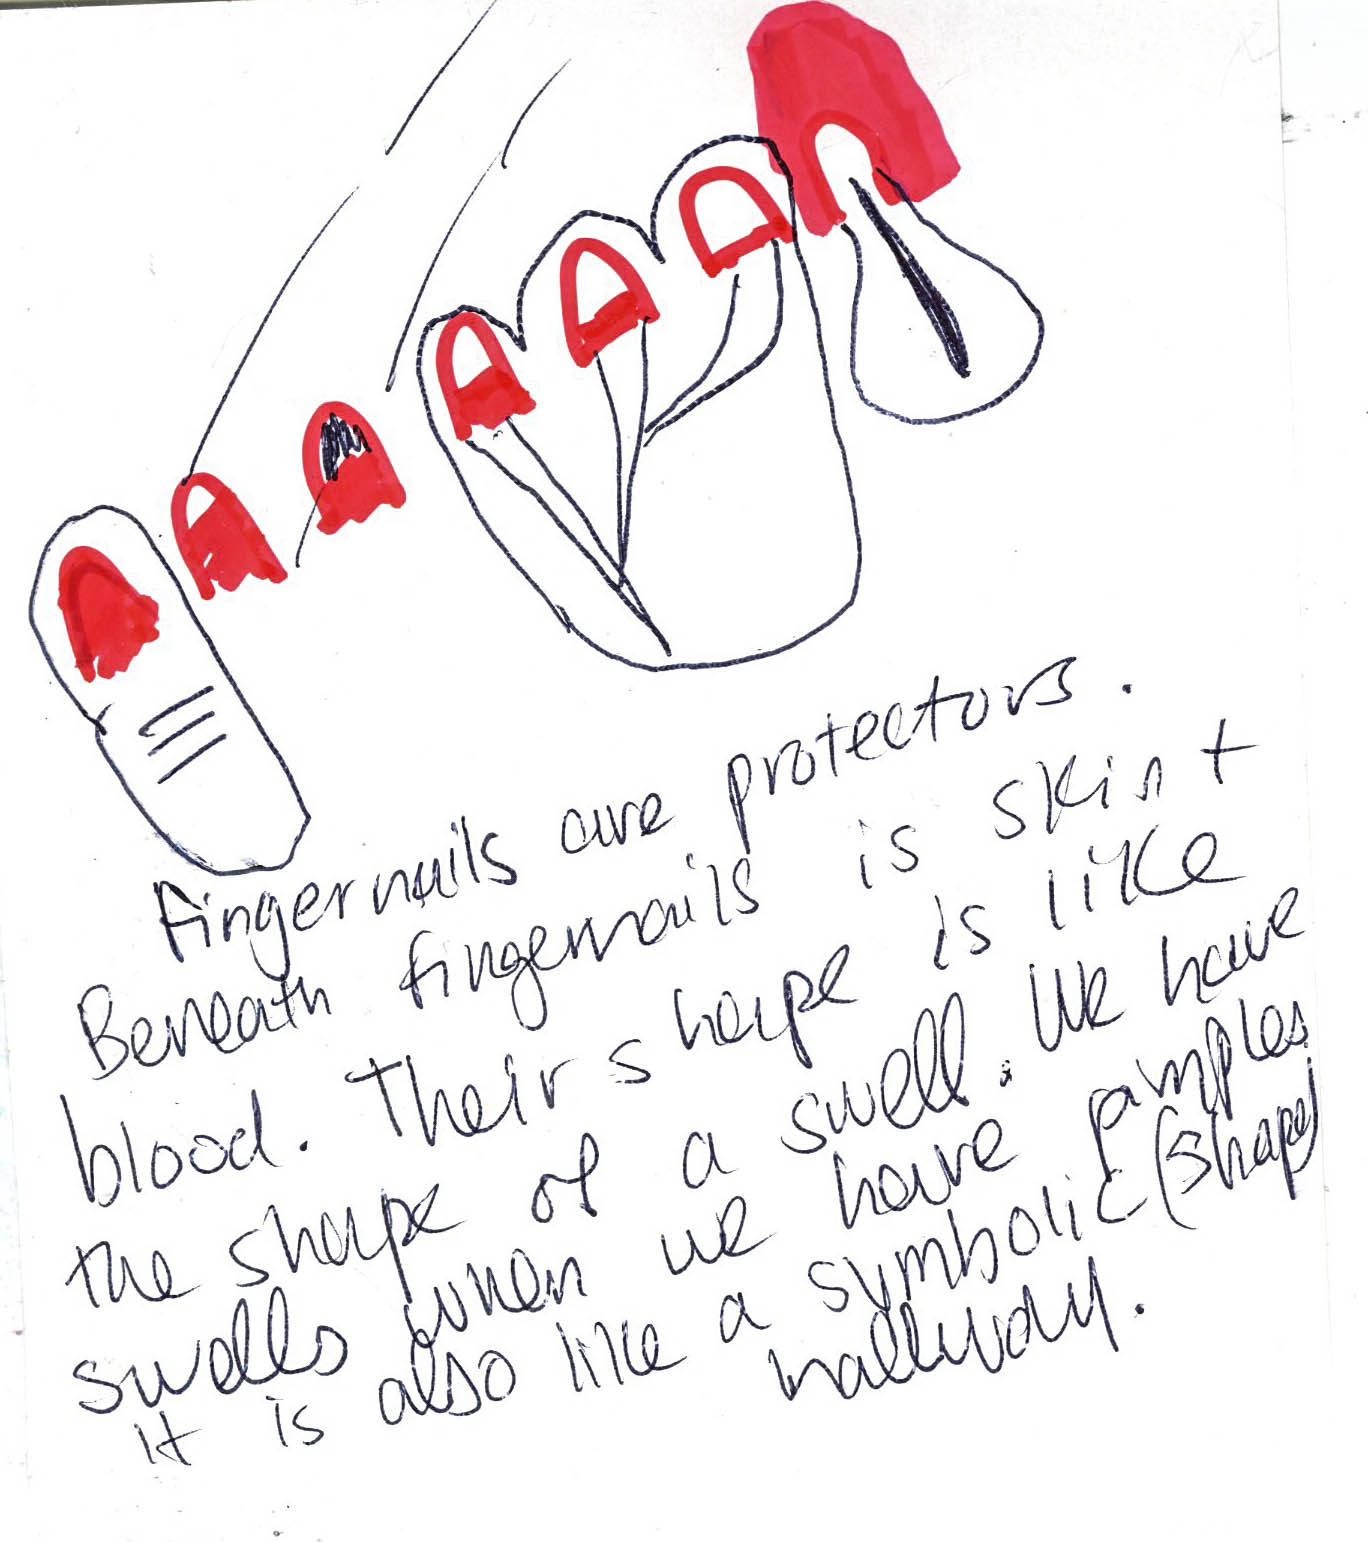 Fingernails are protectors.
Beneath fingernails is skin +
blood. Their shape is like
the shape of a swell. We have
swells when we have pimples
it is also like a symbolic (shape)
hallway.